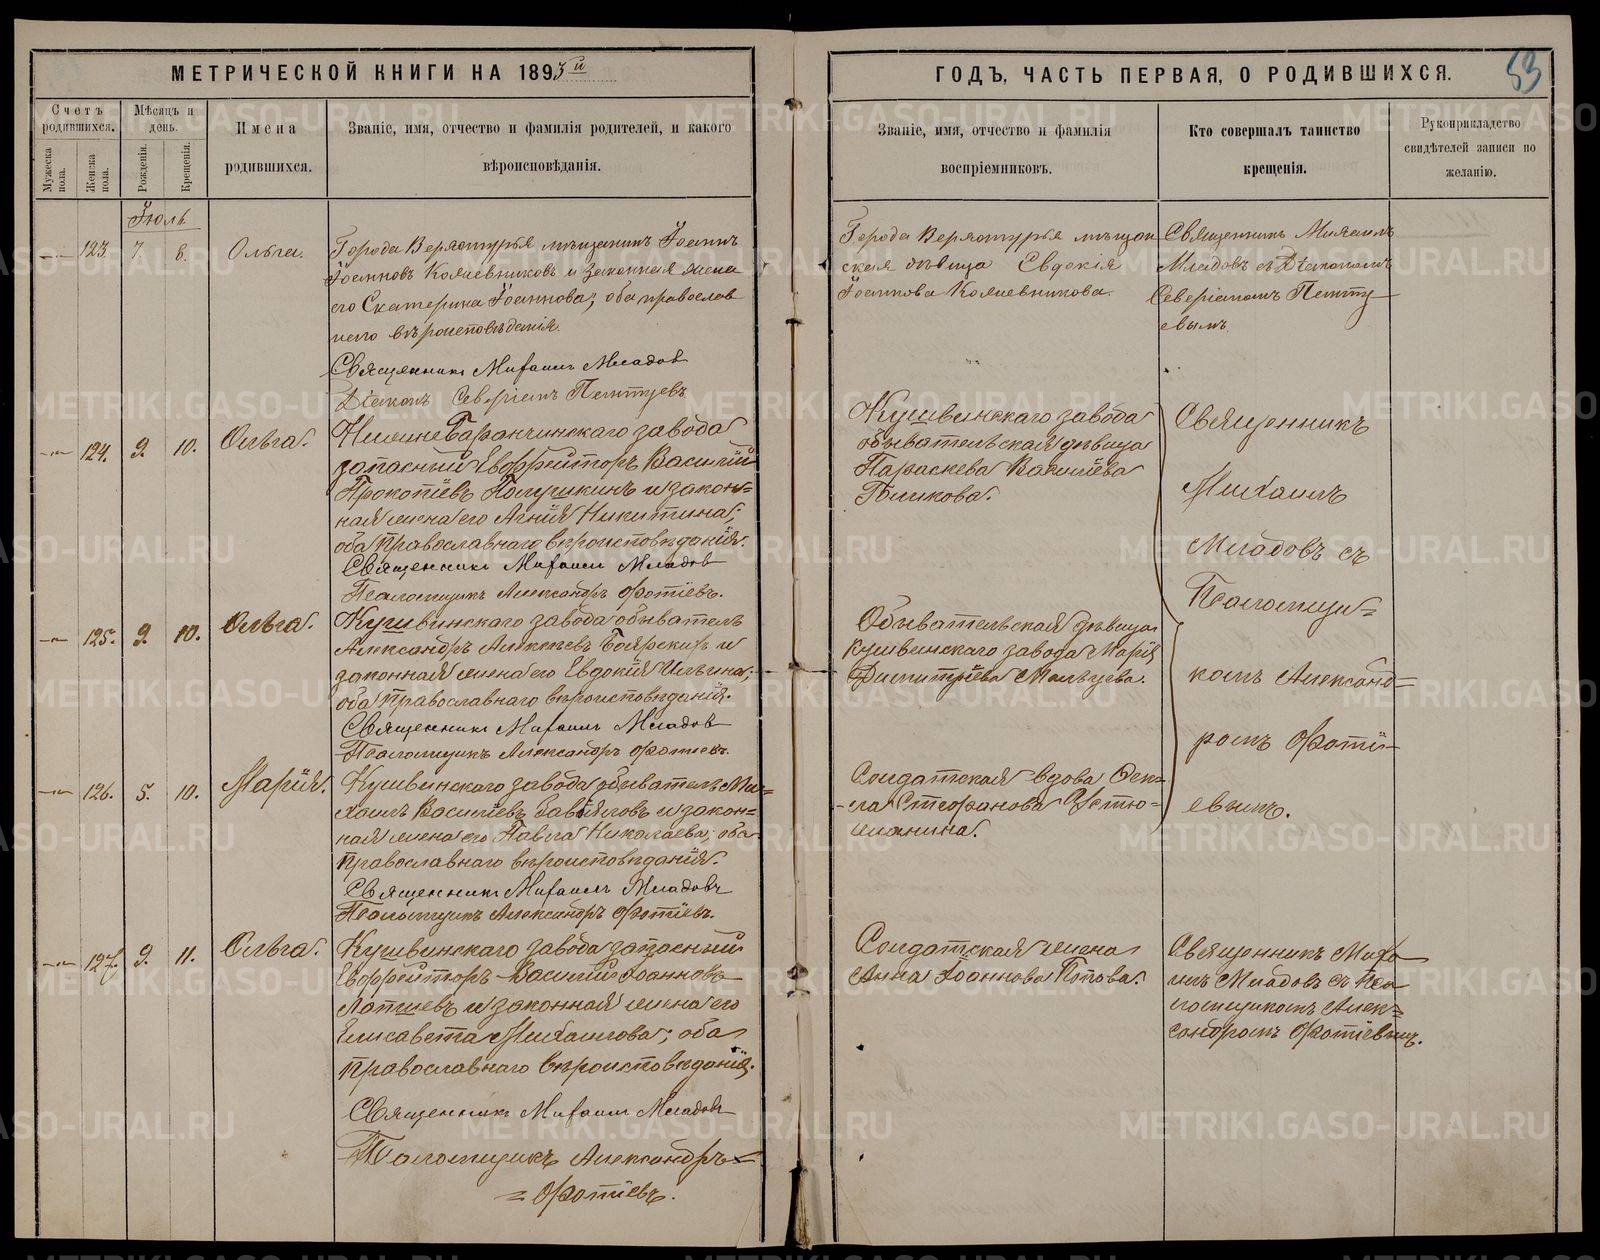 МЕТРИЧЕСКОЙ КНИГИ НА 1893й
Счетъ родившихся.
Мѣсяцъ и день.
Имена родившихся.
Званіе, имя, отчество и фамилія родителей, и какого вѣроисповѣданія.
Мужеска пола.
Женска пола.
Рожденія.
Крещенія.
Іюль
123. 7. 8. Ольга.
Города Верхотурья мѣщанинъ Іоаннъ
Іоанновъ Кожевниковъ и законная жена
его Екатерина Іоаннова; оба православ
наго вѣроисповѣданія.
Священникъ Михаилъ Младовъ
Діаконъ Северіанъ
124. 9. 10. Ольга.
НижнеБаранчинскаго завода
запасный Евффейторъ Василій
Прокопіевъ и закон=
ная жена его Агнія Никитина;
оба православнаго вѣроисповѣданія.
Священникъ Михаилъ Младовъ
Псаломщикъ Александръ Фотіевъ.
125. 9. 10. Ольга.
Кушвинскаго завода обыватель
Александръ Алексѣевъ Боярскихъ и
законная жена его Евдокія Ильина;
оба православнаго вѣроисповѣданія.
Священникъ Михаилъ Младовъ
Псаломщикъ Александръ Фотіевъ.
126. 5. 10. Марія.
Кушвинскаго завода обыватель Ми=
хаилъ Василіевъ и закон=
ная жена его Павла Николаева; оба
православнаго вѣроисповѣданія.
Священникъ Михаилъ Младовъ
Псаломщикъ Александръ Фотіевъ.
127. 9. 11. Ольга.
Кушвинскаго завода запасный
Евффейторъ Василій Іоанновъ
Лаптевъ и законная жена его
Елисавета Михаилова; оба
православнаго вѣроисповѣданія.
Священникъ Михаилъ Младовъ
Псаломщикъ Александръ=
=Фотіевъ.
ГОДЪ, ЧАСТЬ ПЕРВАЯ, О РОДИВШИХСЯ.
53
Званіе, имя, отчество и фамилія воспріемниковъ.
Кто совершалъ таинство крещенія.
Рукоприкладство свидѣтелей записи по желанію.
Города Верхотурья мѣщан
ская дѣвица Евдокія
Іоаннова Кожевникова.
Священникъ Михаилъ
Младовъ съ Діакономъ
Северіаномъ
евымъ.
Кушвинскаго завода
обывательская дѣвица
Параскева Василіева
Священникъ
Михаилъ
Младовъ съ
Псаломщи=
комъ Александ=
ромъ Фоті=
евымъ.
Обывательская дѣвица
Кушвинскаго завода Марія
Димитріева Мальцева.
Солдатская вдова Фек=
ла Стефанова Устю=
жанина.
Солдатская жена
Анна Іоаннова Попова.
Священникъ Миха
илъ Младовъ съ Пса
ломщикомъ Алек=
сандромъ Фотіевымъ.
METRIKI.GASO-URAL.RU